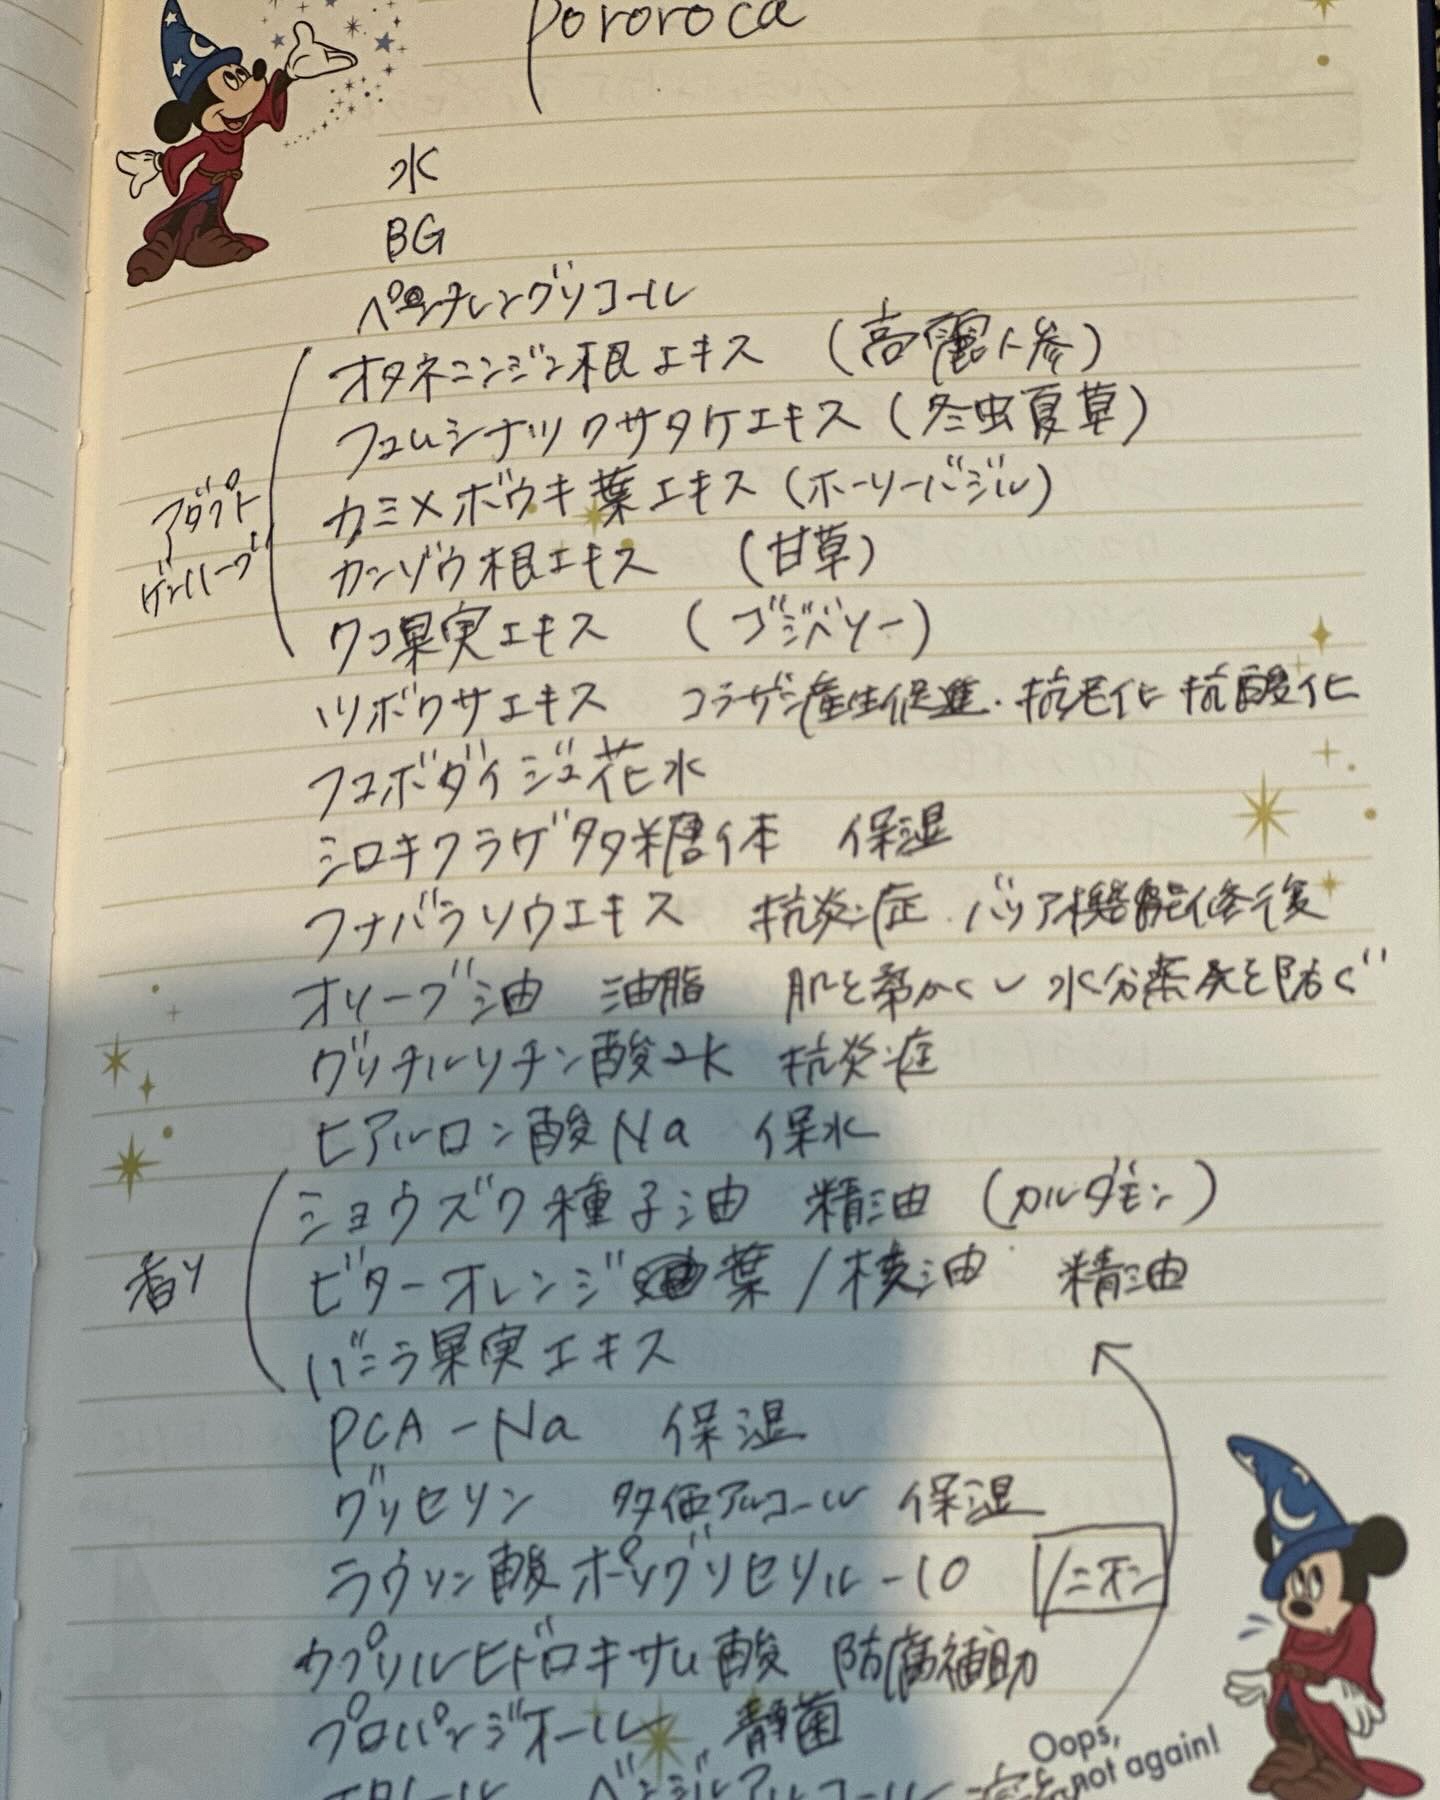 pororoca
水
BG
ペンチレングリコール
オタネニンジン根エキス (高麗人参)
フユムシナツクサタケエキス (冬虫夏草)
カミメボウキ葉エキス (ホーリーバジル)
アダプト
ゲンハーブ
カンゾウ根エキス (甘草)
クコ果実エキス (ゴジベリー)
ハリボクサエキス コラーゲン産生促進・抗老化 抗酸化
フユボダイジュ花水
シロキクラゲ多糖体 保湿
フナバラソウエキス 抗炎症 バリア機能修復
オリーブ油 油脂 肌を柔かくし 水分蒸発を防ぐ
グリチルリチン酸2K 抗炎症
ヒアルロン酸Na 保水
香り
ショウズク種子油 精油 (カルダモン)
ビターオレンジ葉/枝油 精油
バニラ果実エキス
PCA-Na 保湿
グリセリン 多価アルコール 保湿
ラウリン酸ポリグリセリル-10 ノニオン
カプリルヒドロキサム酸 防腐補助
プロパンジオール 静菌
エタノール ベンジルアルコール
Oops,
not again!